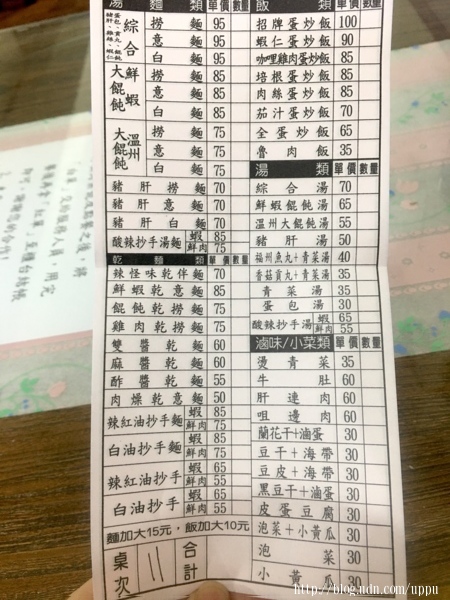 湯 麵 類 單價 數量
蛋包、貢丸、餛飩
豬肝、雞絲、蝦仁
綜合
撈麵 95
意麵 95
白麵 95
鮮蝦
大餛飩
撈麵 85
意麵 85
白麵 85
溫州
大餛飩
撈麵 75
意麵 75
白麵 75
豬肝撈麵 70
豬肝意麵 70
豬肝白麵 70
酸辣抄手湯麵 蝦 85
鮮肉 75
乾麵類 單價 數量
辣怪味乾伴麵 70
鮮蝦乾意麵 85
餛飩乾撈麵 75
雞肉乾撈麵 75
雙醬乾麵 60
麻醬乾麵 60
酢醬乾麵 55
肉燥乾意麵 50
辣紅油抄手麵 蝦 85
鮮肉 75
白油抄手麵 蝦 85
鮮肉 75
辣紅油抄手 蝦 65
鮮肉 55
白油抄手 蝦 65
鮮肉 55
麵加大15元，飯加大10元
桌次 11 合計
招牌蛋炒飯 100
蝦仁蛋炒飯 90
咖哩雞肉蛋炒飯 85
培根蛋炒飯 85
肉絲蛋炒飯 85
茄汁蛋炒飯 70
全蛋炒飯 65
魯肉飯 35
湯類 單價 數量
綜合湯 70
鮮蝦餛飩湯 65
溫州大餛飩湯 55
豬肝湯 50
福州魚丸+青菜湯 40
香菇貢丸+青菜湯 35
青菜湯 35
蛋包湯 30
酸辣抄手湯 蝦 65
鮮肉 55
滷味/小菜類 單價 數量
燙青菜 35
牛肚 60
肝連肉 60
咀邊肉 60
蘭花干+滷蛋 30
豆干+海帶 30
豆皮+海帶 30
黑豆干+滷蛋 30
皮蛋豆腐 30
泡菜+小黃瓜 30
泡菜 30
小黃瓜 30
http://blog.udn.com/uppu